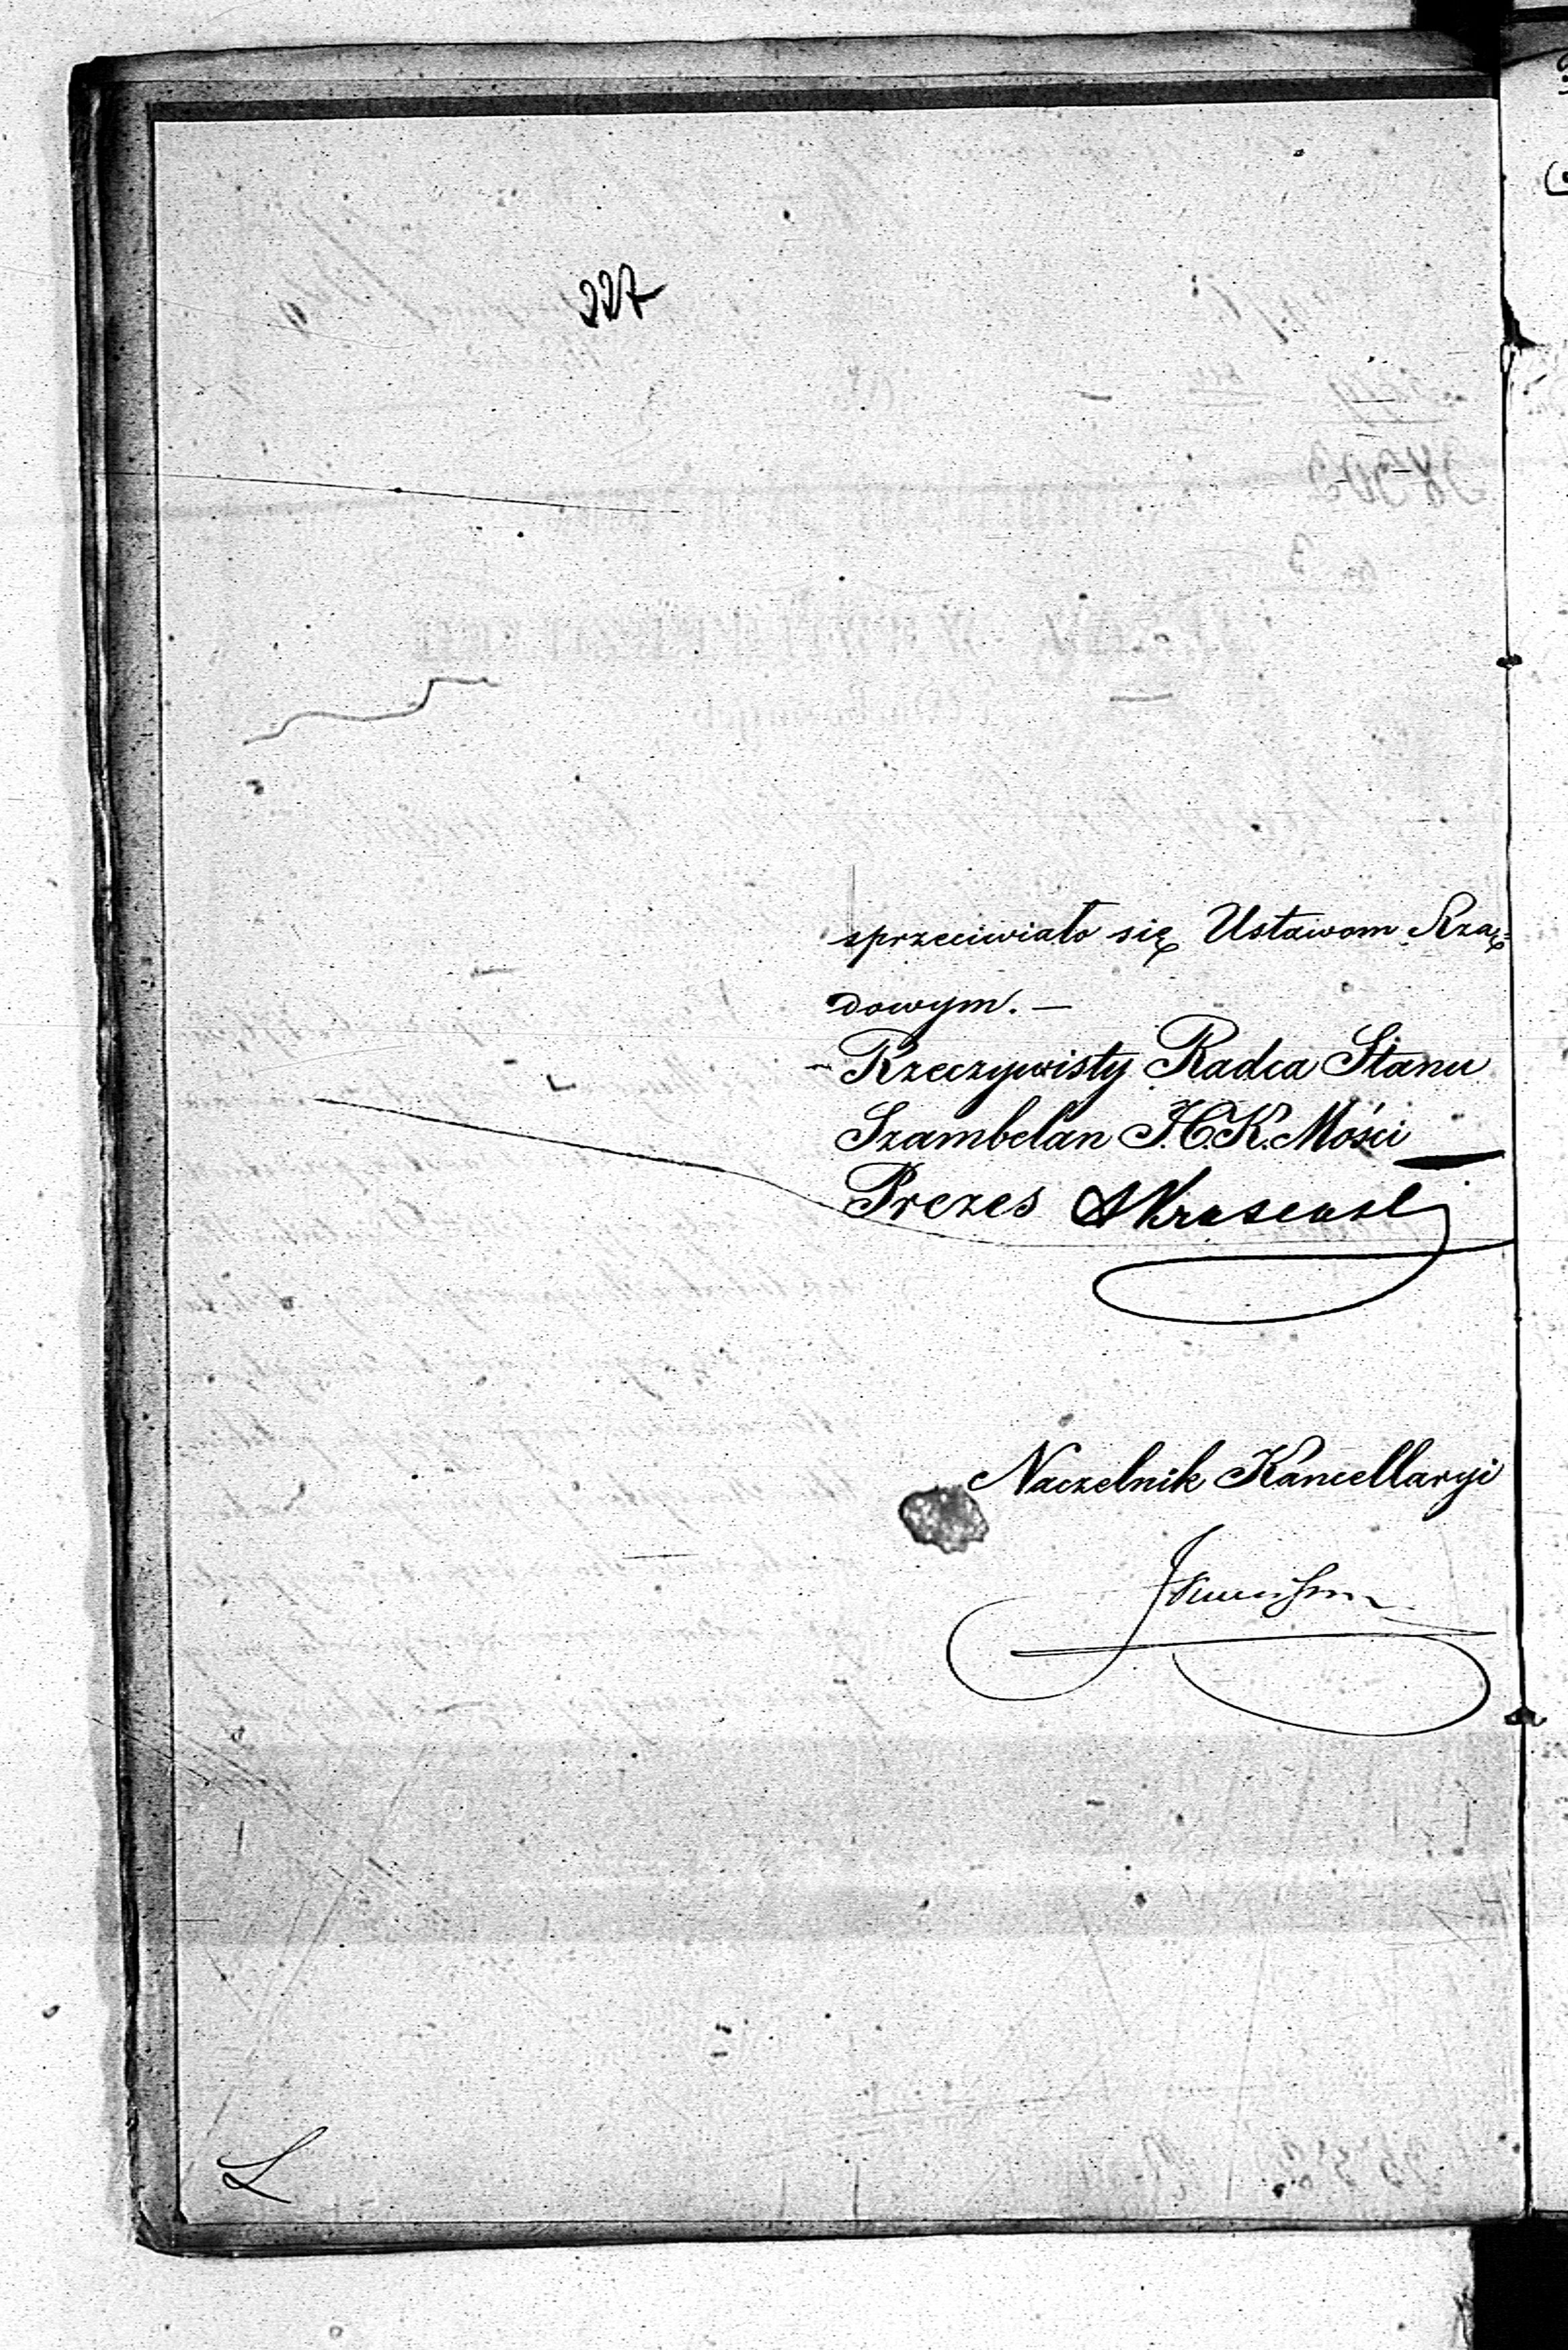 227
sprzeciwiało się Ustawom Rzą=
dowym. —
Rzeczywisty Radca Stanu
Szambelan J.C.K. Mości
Prezes
Naczelnik Kancellaryi
L